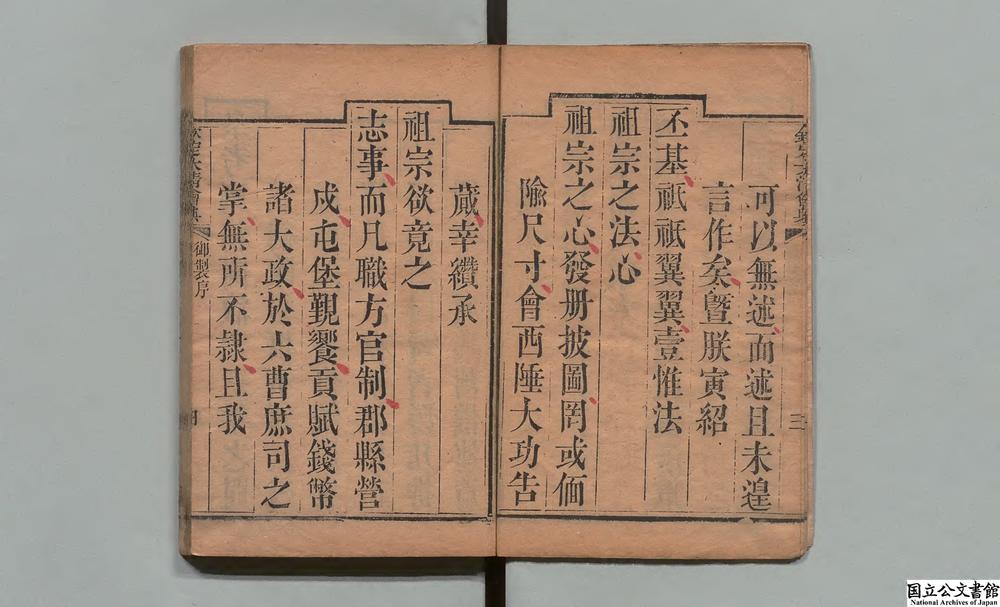 可以無述而述且未遑
言作矣暨朕寅紹
丕基祇祇翼翼壹惟法
祖宗之法心
祖宗之心發册披圖罔或偭
隃尺寸會西陲大功告
三
蕆幸纘承
祖宗欲竟之
志事而凡職方官制郡縣營
戍屯堡覲饗貢賦錢幣
諸大政於六曹庶司之
掌無所不隷且我
御製序
国立公文書館
National Archives of Japan